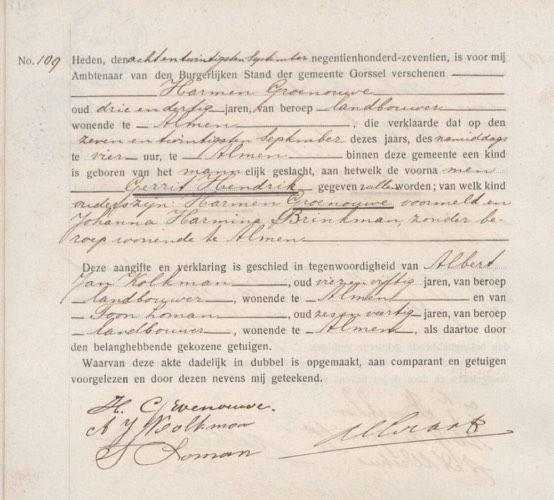 No. 109 Heden, den achtentwintigsten September negentienhonderd-zeventien, is voor mij
Ambtenaar van den Burgerlijken Stand der gemeente Gorssel verschenen
Harmen Groenouwe
oud drie endertig jaren, van beroep landbouwer
wonende te Almen, die verklaarde dat op den
zeven en twintigsten September dezes jaars, des namiddags
te vier uur, te Almen binnen deze gemeente een kind
is geboren van het mannelijk geslacht, aan hetwelk de voornamen
Gerrit Hendrik gegeven zullen worden; van welk kind
ouders zijn: Harmen Groenouwe voormeld en
Johanna Harmina Brinkman, zonder be-
roep wonende te Almen
Deze aangifte en verklaring is geschied in tegenwoordigheid van Albert
Jan Kolkman, oud vierenvijftig jaren, van beroep
landbouwer, wonende te Almen en van
Loman, oud zesenveertig jaren, van beroep
landbouwer, wonende te Almen, als daartoe door
den belanghebbende gekozene getuigen.
Waarvan deze akte dadelijk in dubbel is opgemaakt, aan comparant en getuigen
voorgelezen en door dezen nevens mij geteekend.
H. Groenouwe.
A J Kolkman
Loman